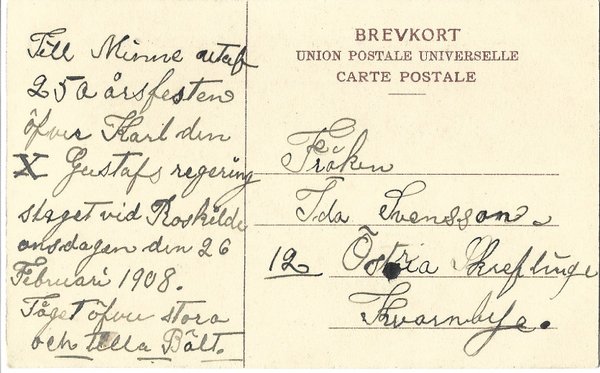 BREVKORT
UNION POSTALE UNIVERSELLE
CARTE POSTALE
Till Minne utaf
250 årsfesten
öfver Karl den
X Gustafs regering
slaget vid Roskilde
onsdagen den 26
Februari 1908.
Tåget öfver stora
och lilla Bält.
Fröken
Ida Svensson.
12 Östra Skreflinge
Kvarnbye.